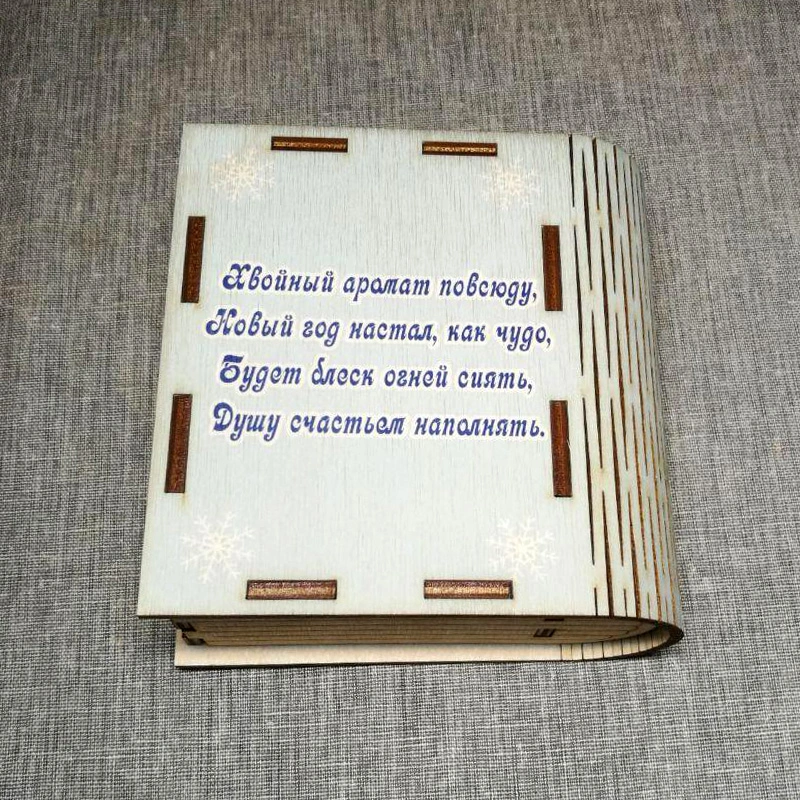 Хвойный аромат повсюду,
Новый год настал, как чудо,
Будет блеск огней сиять,
Душу счастьем наполнять.